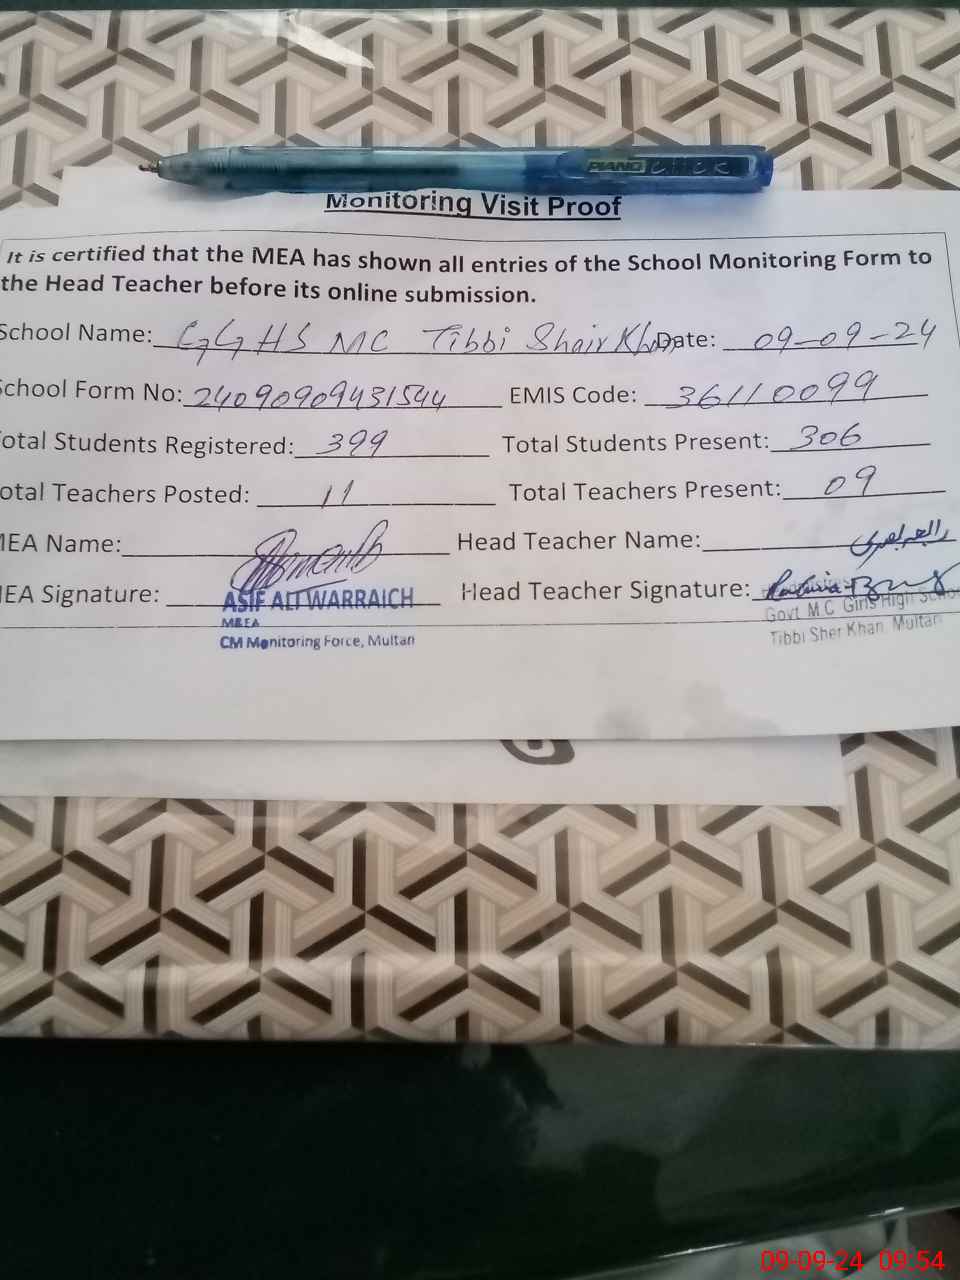 PIANO CLICK
Monitoring Visit Proof
It is certified that the MEA has shown all entries of the School Monitoring Form to
the Head Teacher before its online submission.
School Name: GGHS MC Tibbi Shair Khan Date: 09-09-24
School Form No: 24090909431544 EMIS Code: 36110099
Total Students Registered: 399 Total Students Present: 306
otal Teachers Posted: 11 Total Teachers Present: 09
MEA Name: Head Teacher Name: رابعہ بصری
MEA Signature: Head Teacher Signature:
ASIF ALI WARRAICH
M&EA
CM Monitoring Force, Multan
Govt M.C Girls High School
Tibbi Sher Khan. Multan
09-09-24 09:54